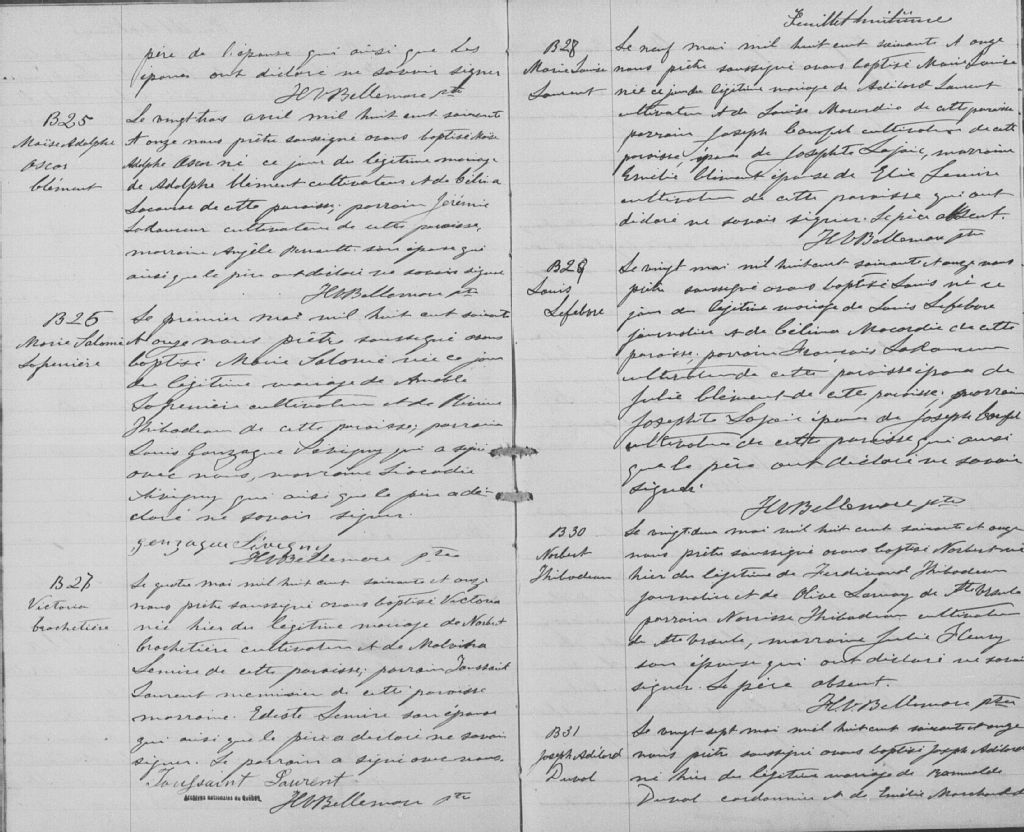 père de l'épouse qui ainsi que les
époux ont déclaré ne savoir signer
HVBellemare ptre
B25
Moïse Adolphe
Oscar
Clément
Le vingt trois avril mil huit cent soixante
et onze nous prêtre soussigné avons baptisé Moïse
Adolphe Oscar né ce jour du légitime mariage
de Adolphe Clément cultivateur et de Célina
de cette paroisse; parrain Jérémie
cultivateur de cette paroisse,
marraine Angèle son épouse qui
ainsi que le père ont déclaré ne savoir signer
HVBellemare ptre
B26
Marie Salomé
Le premier mai mil huit cent soixante
et onze nous prêtre soussigné avons
baptisé Marie Salomé née ce jour
du légitime mariage de Amable
cultivateur et de
Thibodeau de cette paroisse; parrain
Louis Gonzague Sévigny qui a signé
avec nous, marraine Léocadie
Sévigny qui ainsi que le père a dé-
claré ne savoir signer.
Gonzague Sévigny
HVBellemare ptre
B27
Victoria
Crochetière
Le quatre mai mil huit cent soixante et onze
nous prêtre soussigné avons baptisé Victoria
née hier du légitime mariage de Norbert
Crochetière cultivateur et de Malvina
Lemire de cette paroisse; parrain Toussaint
Laurent menuisier de cette paroisse
marraine Edeste Lemire son épouse
qui ainsi que le père a déclaré ne savoir
signer. Le parrain a signé avec nous.
Toussaint Laurent
HVBellemare ptre
Archives nationales du Québec
Feuillet huitième
B28
Marie Louise
Laurent
Le neuf mai mil huit cent soixante et onze
nous prêtre soussigné avons baptisé Marie Louise
née ce jour du légitime mariage de Adélard Laurent
cultivateur et de Louise de cette paroisse
parrain Joseph cultivateur de cette
paroisse, époux de Josephte Lafoie, marraine
Emélie Clément épouse de Elie Lemire
cultivateur de cette paroisse qui ont
déclaré ne savoir signer. Le père absent.
HVBellemare ptre
B29
Louis
Lefebvre
Le vingt mai mil huit cent soixante et onze nous
prêtre soussigné avons baptisé Louis né ce
jour du légitime mariage de Louis Lefebvre
journalier et de Célina de cette
paroisse; parrain François
cultivateur de cette paroisse époux de
Julie Clément de cette paroisse; marraine
Josephte Lafoie épouse de Joseph
cultivateur de cette paroisse qui ainsi
que le père ont déclaré ne savoir
signer.
HVBellemare ptre
B30
Norbert
Thibodeau
Le vingt deux mai mil huit cent soixante et onze
nous prêtre soussigné avons baptisé Norbert né
hier du légitime de Ferdinand Thibodeau
journalier et de Olive de Ste Ursule
parrain Narcisse Thibodeau cultivateur
de Ste Ursule, marraine Julie Fleury
son épouse qui ont déclaré ne savoir
signer. Le père absent.
HVBellemare ptre
B31
Joseph Adélard
Duval
Le vingt sept mai mil huit cent soixante et onze
nous prêtre soussigné avons baptisé Joseph Adélard
né hier du légitime mariage de Romualde
Duval cordonnier et de Emélie